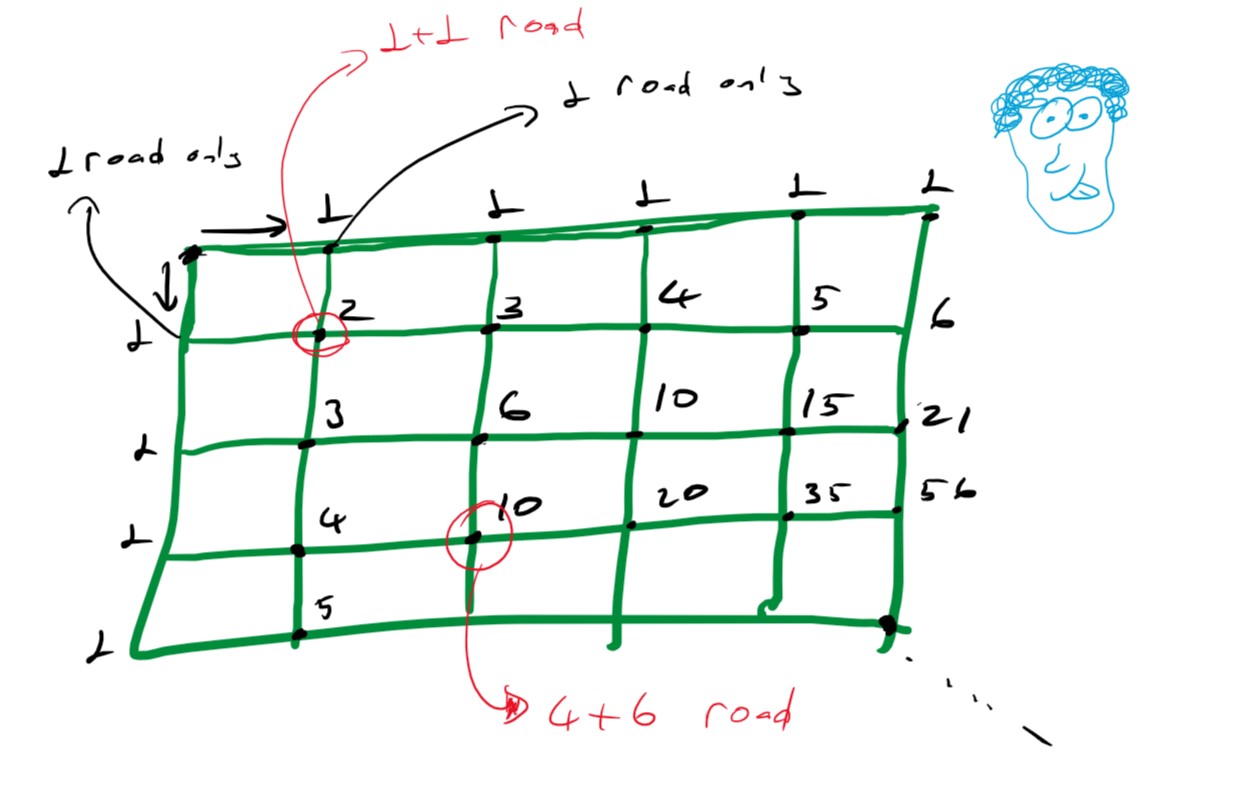 1+1 road
1 road only
1 road only
1 1 1 1 1
1 2 3 4 5 6
1 3 6 10 15 21
1 4 10 20 35 56
1 5
4+6 road